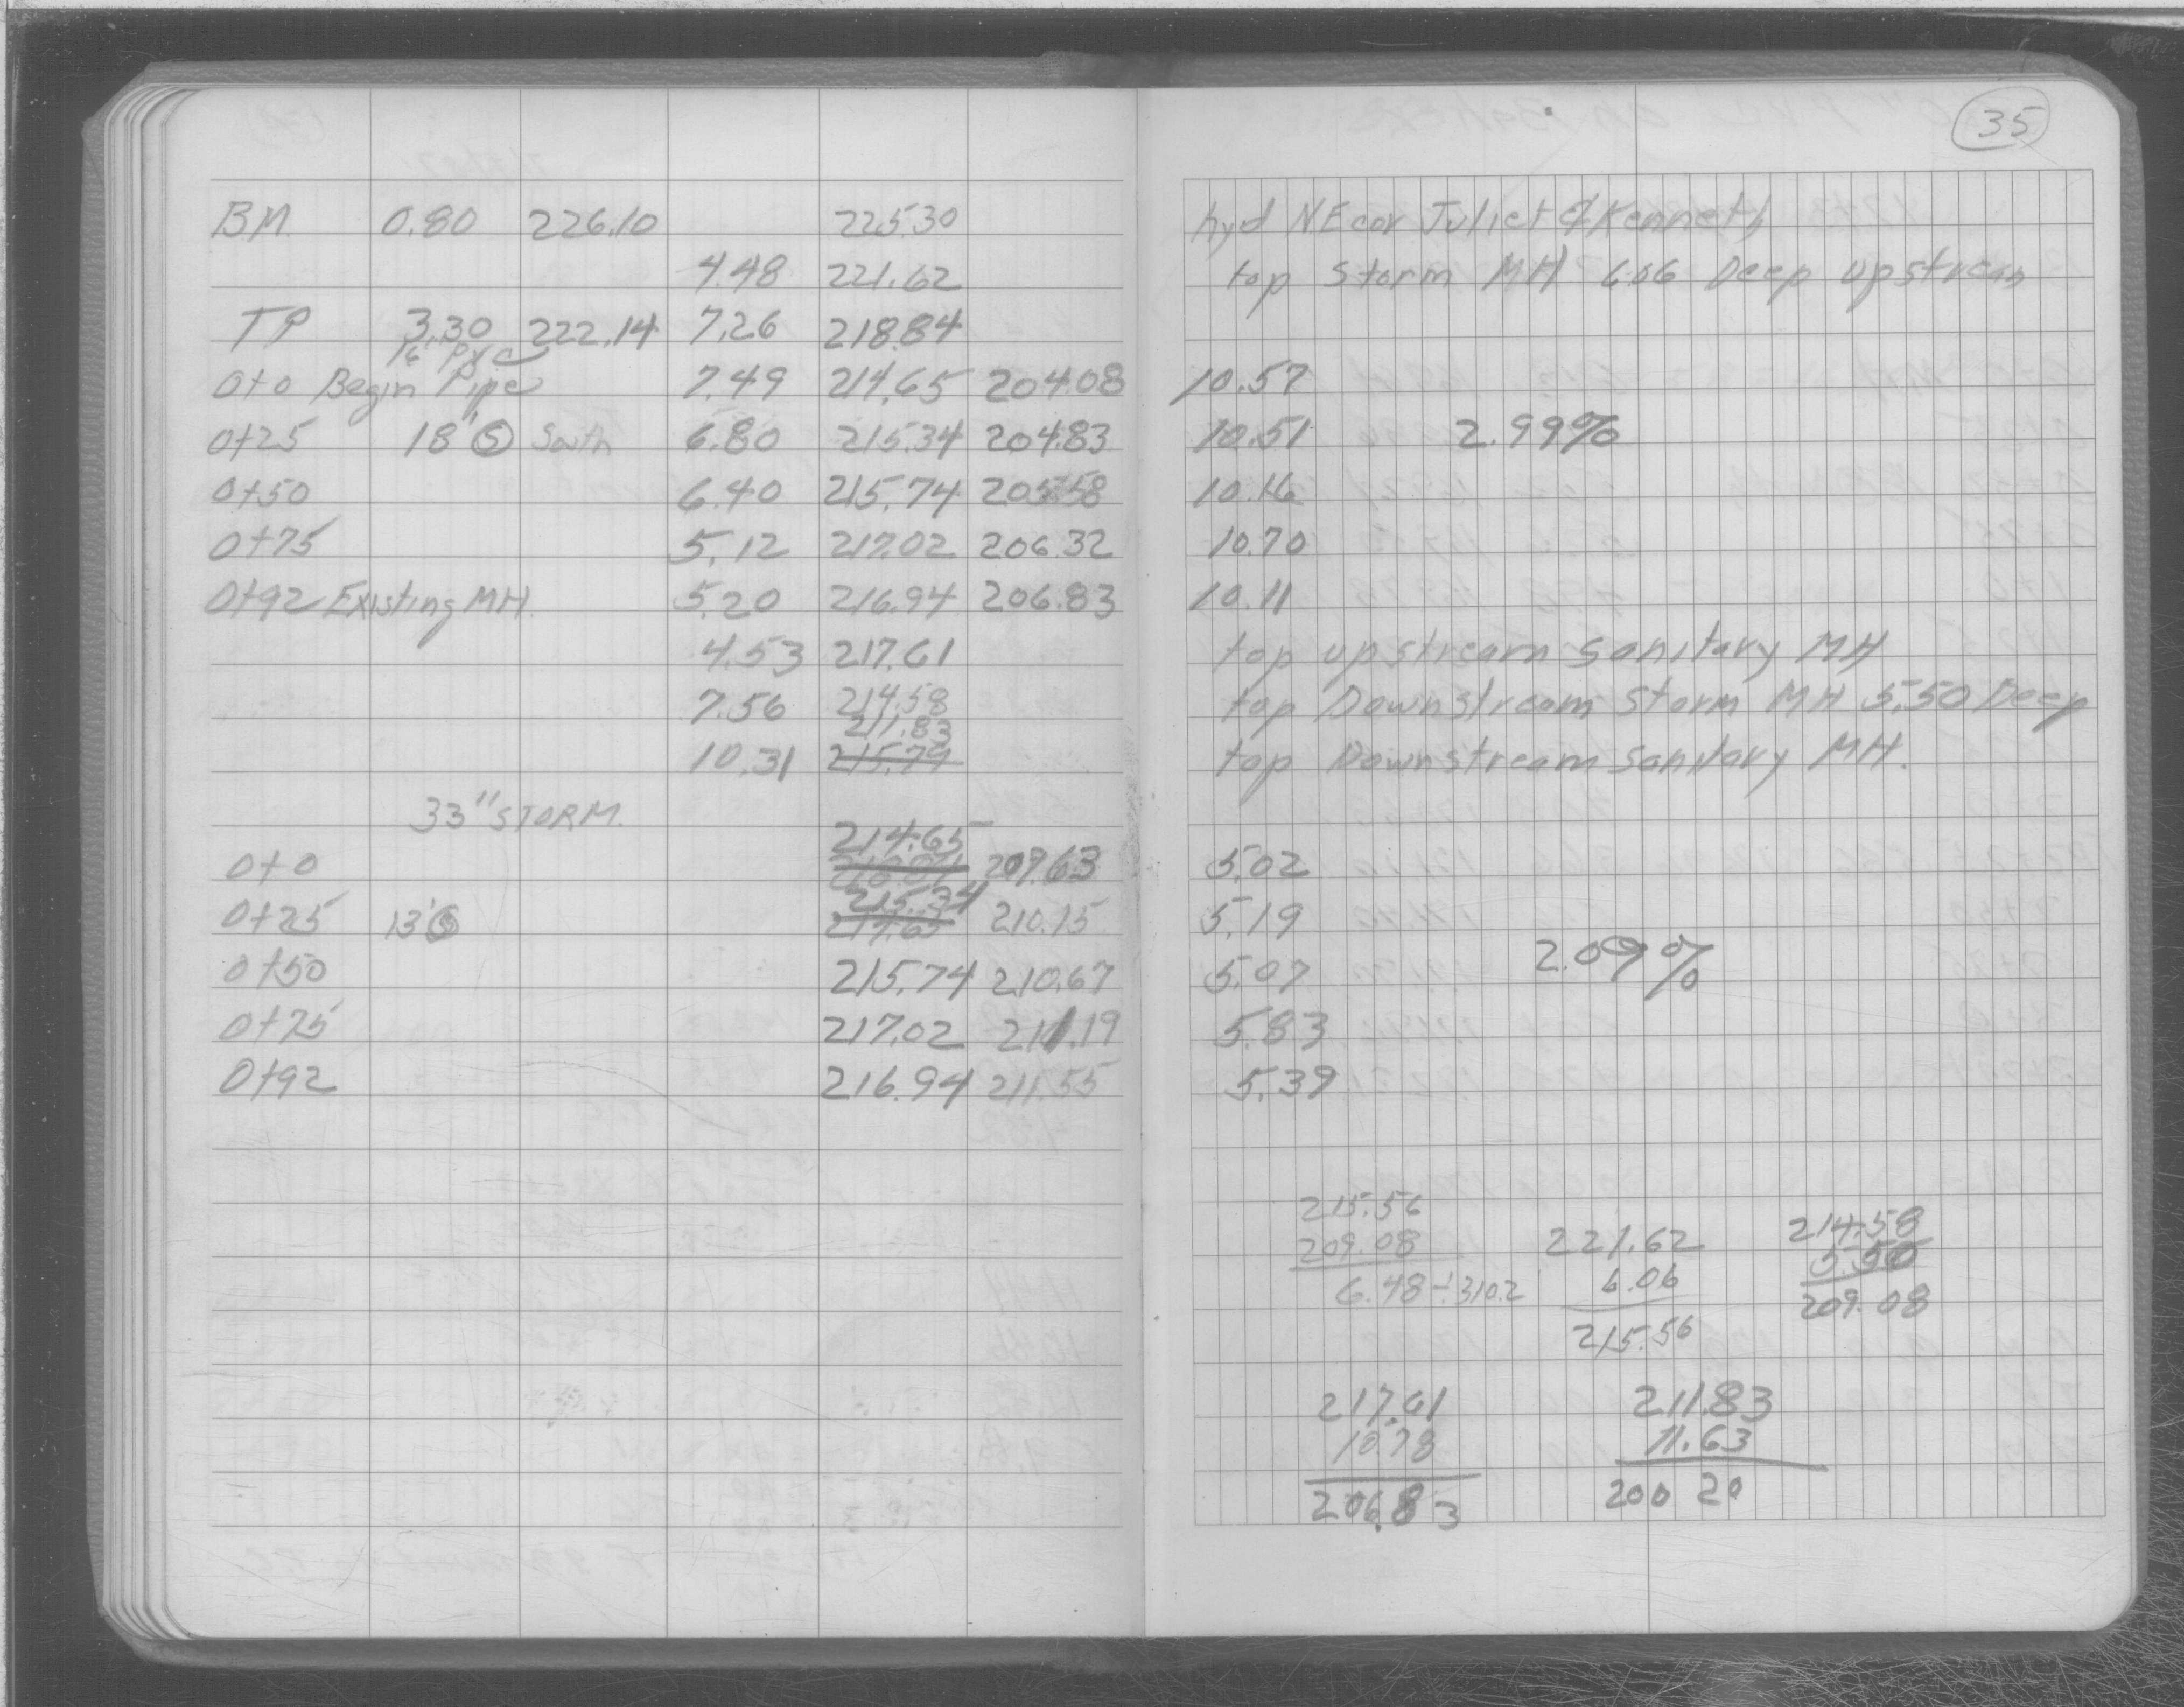 35
BM 0.80 226.10 225.30 hyd NE cor Juliet & Kenneth
4.48 221.62 top Storm MH 6.06 Deep upstream
TP 3.30 222.14 7.26 218.84
0+0 Begin Pipe 7.49 214.65 204.08 10.57
0+25 18' S South 6.80 215.34 204.83 10.51 2.99%
0+50 6.40 215.74 205.58 10.16
0+75 5.12 217.02 206.32 10.70
0+92 Existing MH. 5.20 216.94 206.83 10.11
4.53 217.61 top upstream sanitary MH
7.56 214.58 top Downstream Storm MH 5.50 Deep
211.83
10.31 215.79 top Downstream Sanitary MH.
33" STORM.
214.65
0+0 209.63 5.02
215.34
0+25 13' S 217.65 210.15 5.19
0+50 215.74 210.67 5.07 2.09%
0+75 217.02 211.19 5.83
0+92 216.94 211.55 5.39
215.56
209.08 221.62 214.58
6.48 ÷ 310.2 6.06 5.50
215.56 209.08
217.61 211.83
10.78 11.63
206.83 200 20